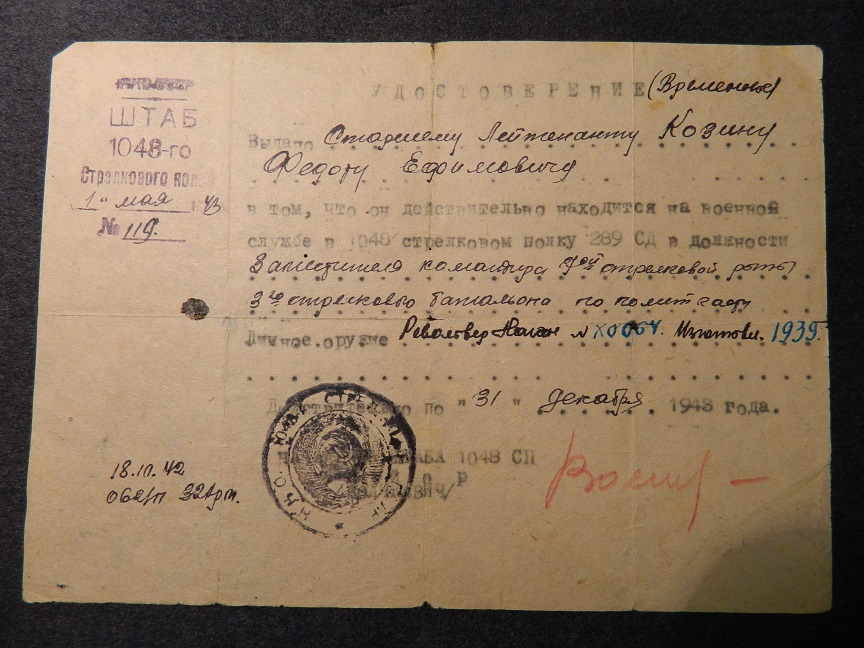 ШТАБ
1048-го
Стрелкового полка
"1" мая 1943
№ 119.
УДОСТОВЕРЕНИЕ (Временное)
Выдано Старшему Лейтенанту Козину
Федору Ефимовичу
в том, что он действительно находится на военной
службе в 1048 стрелковом полку 289 СД в должности
Заместителя командира 7ой стрелковой роты
3го стрелкового батальона по политчасти
Личное оружие Револьвер Наган № Х0064. Изготовл. 1939.
Действительно по "31" декабря 1943 года.
ШТАБА 1048 СП
18.11.42